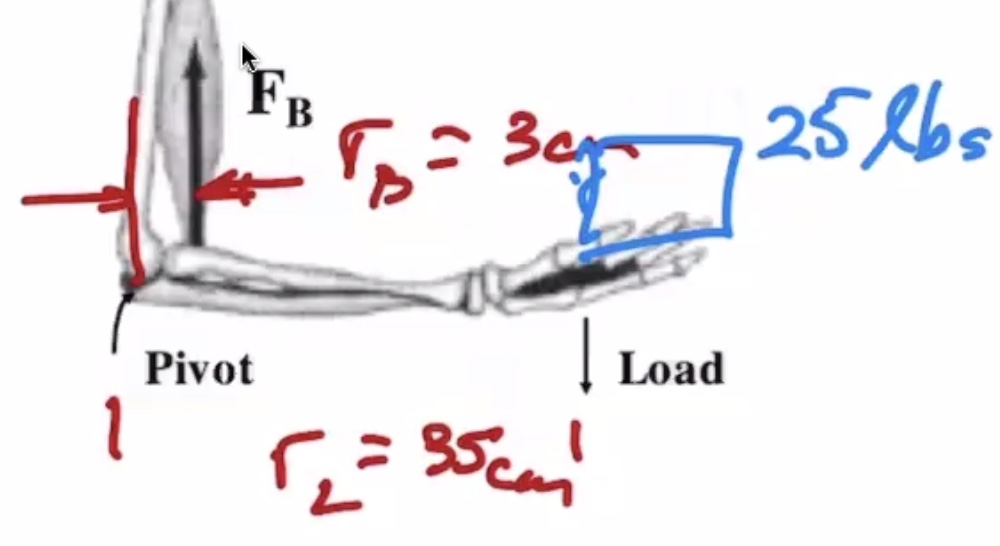 F_B
r_B = 3cm
25 lbs
Pivot
Load
r_L = 35cm